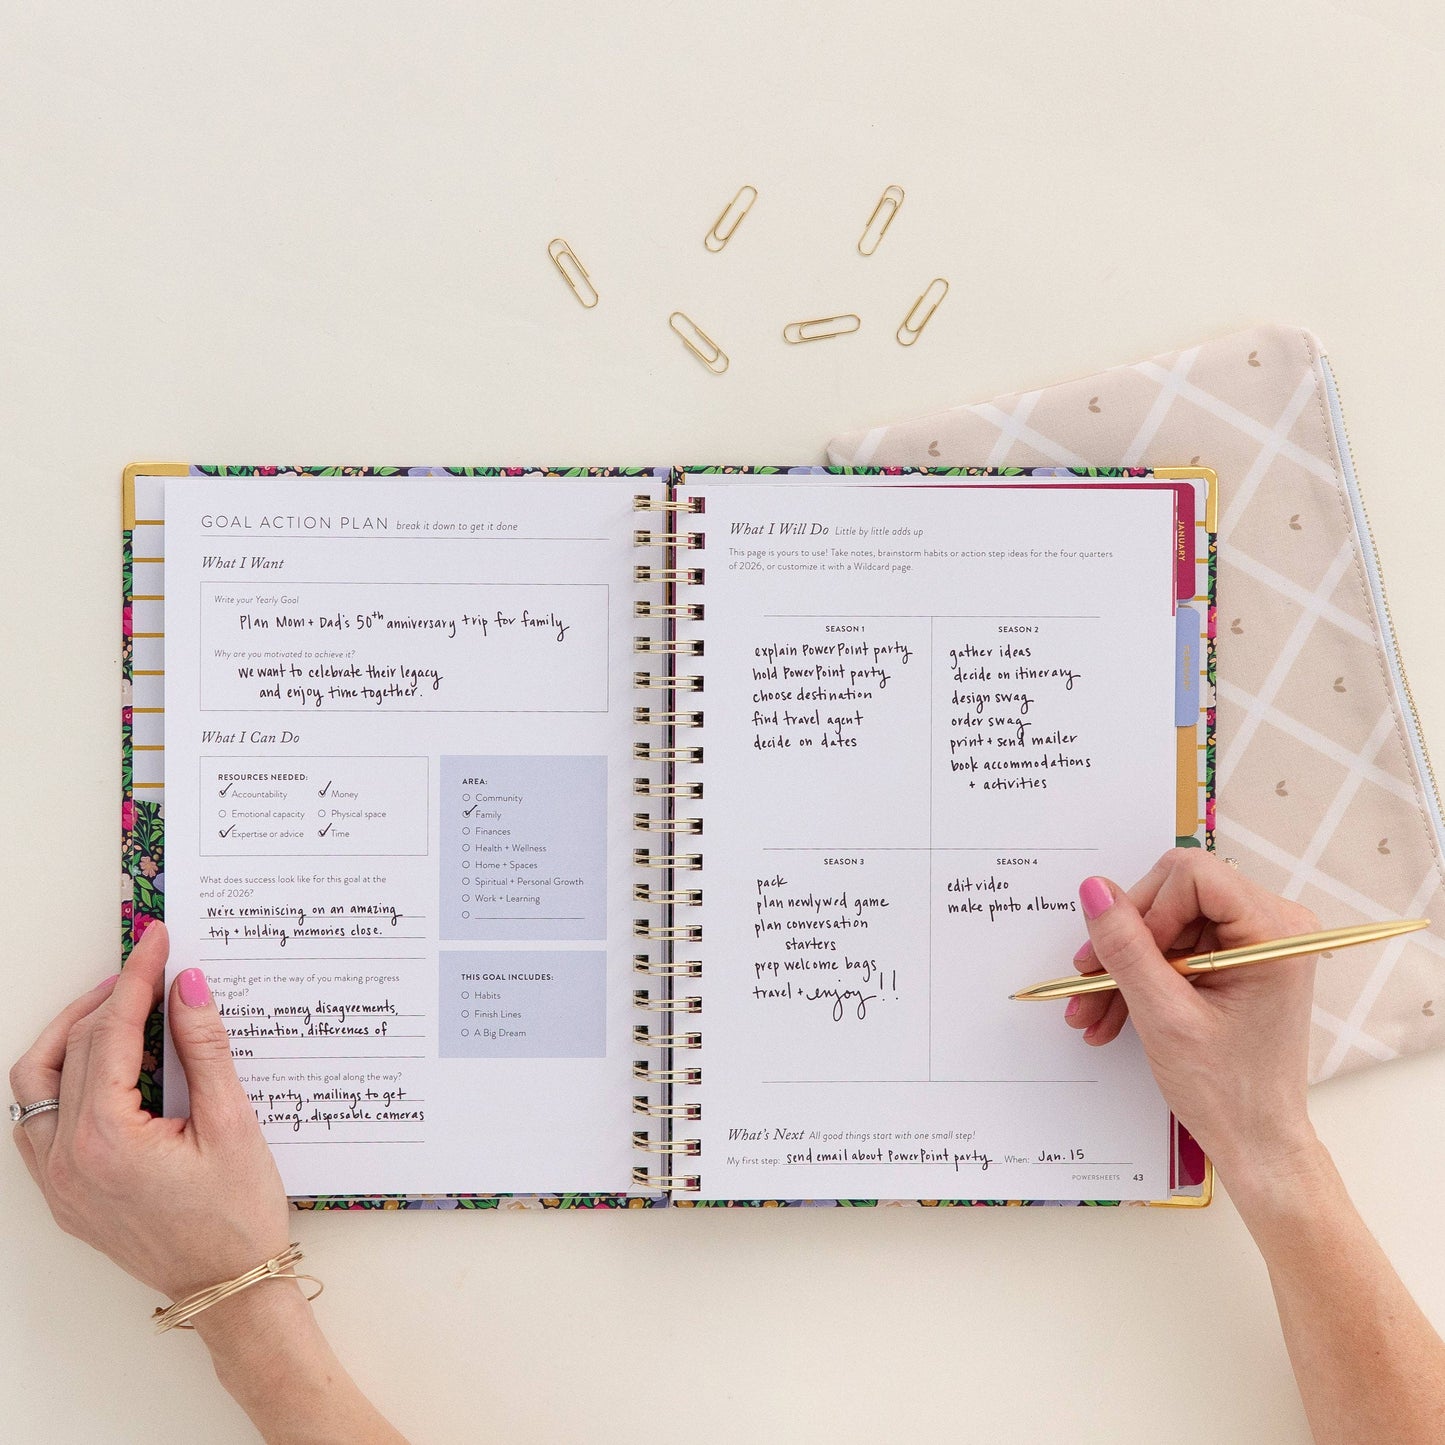 GOAL ACTION PLAN break it down to get it done
What I Want
Write your Yearly Goal
Plan Mom + Dad's 50th anniversary trip for family
Why are you motivated to achieve it?
We want to celebrate their legacy
and enjoy time together.
What I Can Do
RESOURCES NEEDED:
Accountability Money
Emotional capacity Physical space
Expertise or advice Time
AREA:
Community
Family
Finances
Health + Wellness
Home + Spaces
Spiritual + Personal Growth
Work + Learning
What does success look like for this goal at the
end of 2026?
We're reminiscing on an amazing
trip + holding memories close.
THIS GOAL INCLUDES:
Habits
Finish Lines
A Big Dream
What might get in the way of you making progress
this goal?
decision, money disagreements,
differences of
you have fun with this goal along the way?
party, mailings to get
swag, disposable cameras
What I Will Do Little by little adds up
This page is yours to use! Take notes, brainstorm habits or action step ideas for the four quarters
of 2026, or customize it with a Wildcard page.
SEASON 1
explain PowerPoint party
hold PowerPoint party
choose destination
find travel agent
decide on dates
SEASON 2
gather ideas
decide on itinerary
design swag
order swag
print + send mailer
book accommodations
+ activities
SEASON 3
pack
plan newlywed game
plan conversation
starters
prep welcome bags
travel + enjoy!!
SEASON 4
edit video
make photo albums
What's Next All good things start with one small step!
My first step: send email about PowerPoint party When: Jan. 15
POWERSHEETS 43
JANUARY